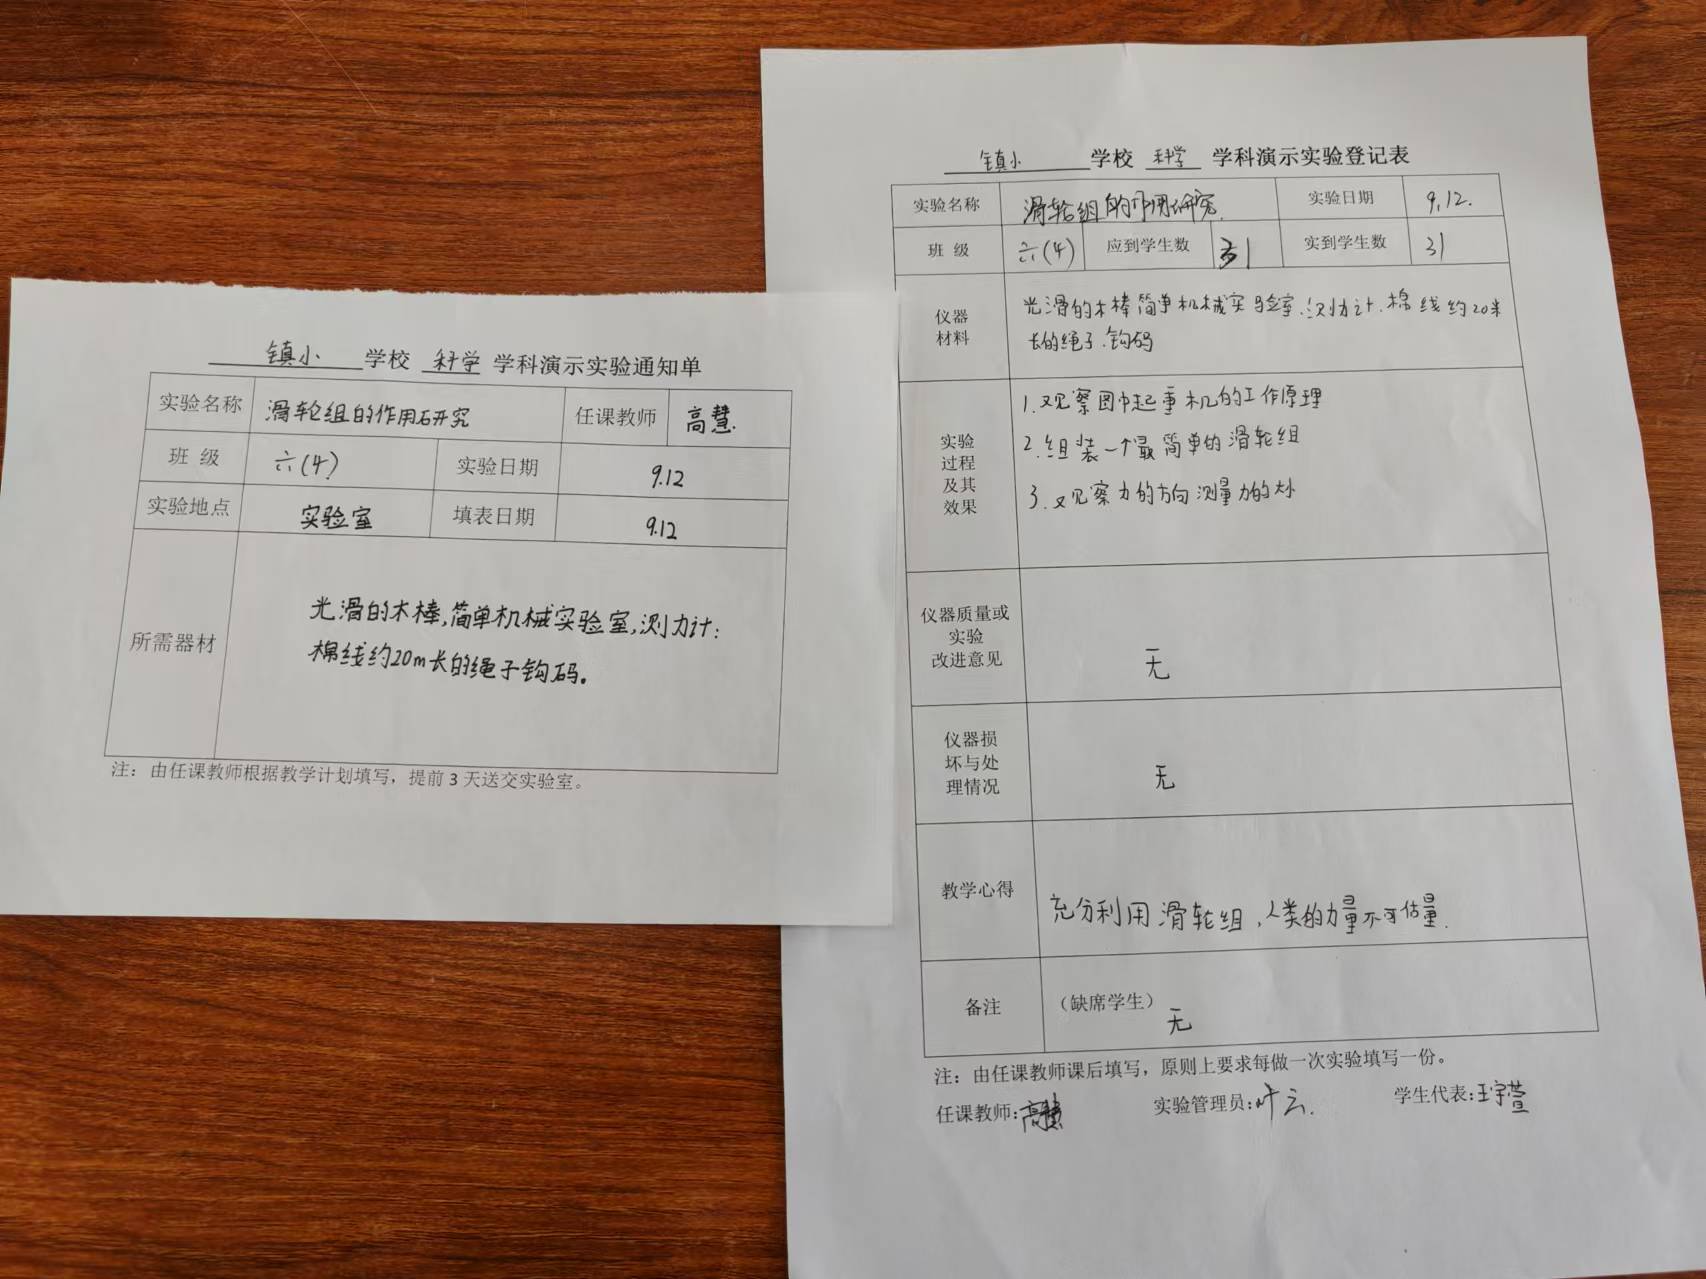 镇小 学校 科学 学科演示实验通知单
实验名称 滑轮组的作用研究 任课教师 高慧
班 级 六(4) 实验日期 9.12
实验地点 实验室 填表日期 9.12
所需器材
光滑的木棒,简单机械实验室,测力计:
棉线约20m长的绳子钩码。
注：由任课教师根据教学计划填写，提前 3 天送交实验室。
镇小 学校 科学 学科演示实验登记表
实验名称 滑轮组的作用研究. 实验日期 9.12.
班 级 六(4) 应到学生数 31 实到学生数 31
仪器
材料
光滑的木棒简单机械实验室.测力计.棉线约20米
长的绳子.钩码
实验
过程
及其
效果
1.观察图中起重机的工作原理
2.组装一个最简单的滑轮组
3.观察力的方向测量力的大小
仪器质量或
实验
改进意见
无
仪器损
坏与处
理情况
无
教学心得
充分利用滑轮组,人类的力量不可估量.
备注 （缺席学生） 无
注：由任课教师课后填写，原则上要求每做一次实验填写一份。
任课教师:高慧 实验管理员:叶云. 学生代表:王宇萱